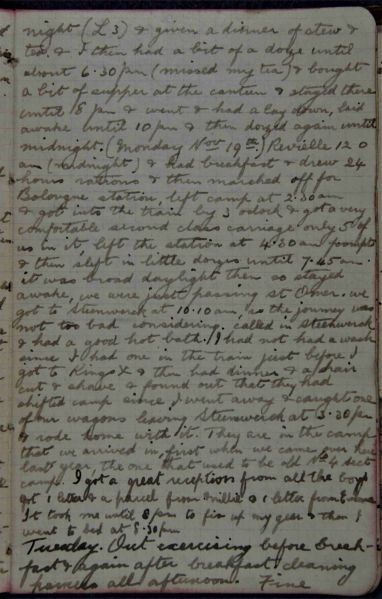 night (L 3) & given a dinner of stew &
tea. & I then had a bit of a doze until
about 6.30 pm (missed my tea) & bought
a bit of supper at the canteen & stayed there
until 8 pm & went & had a lay down, laid
awake until 10 pm & then dozed again until
midnight. (Monday Nov 19th) Reville 12 0
am (midnight) & had breakfast & drew 24
hours rations & then marched off for
Bologne station, left camp at 2.30 am
& got into the train by 3 oclock & got a very
comfortable second class carriage only 5 of
us in it, left the station at 4.30 am prompt
& then slept in little dozes until 7.45 am.
it was broad daylight then so stayed
awake, we were just passing St Omer. we
got to Steenwerck at 10.10 am, so the journey was
not too bad considering. called in Steenwerck
& had a good hot bath. I had not had a wash
since I had one in the train just before I
got to Kings X & then had dinner & a hair
cut & shave & found out that they had
shifted camp since I went away & caught one
of our wagons leaving Steenwerck at 3.30 pm
& rode home with it. They are in the camp
that we arrived in, first when we came over here
last year, the one that used to be old No 4 sect
camp. I got a great reception from all the boys
& 1 letter & a parcel from Millie & 1 letter from
It took me until 8 pm to fix up my gear & then I
went to bed at 8.30 pm
Tuesday. Out exercising before break-
fast & again after breakfast cleaning
harness all afternoon. Fine